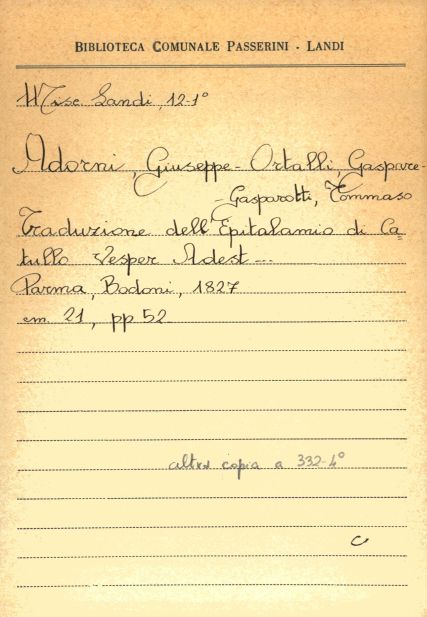 BIBLIOTECA COMUNALE PASSERINI - LANDI
Misc. Landi, 12-1°
Adorni, Giuseppe - Ortalli, Gaspare -
- Gasparotti, Tommaso
Traduzione dell'Epitalamio di Ca=
tullo Vesper Adest...
Parma, Bodoni, 1827
cm. 21, pp 52
altra copia a 332-4°
C